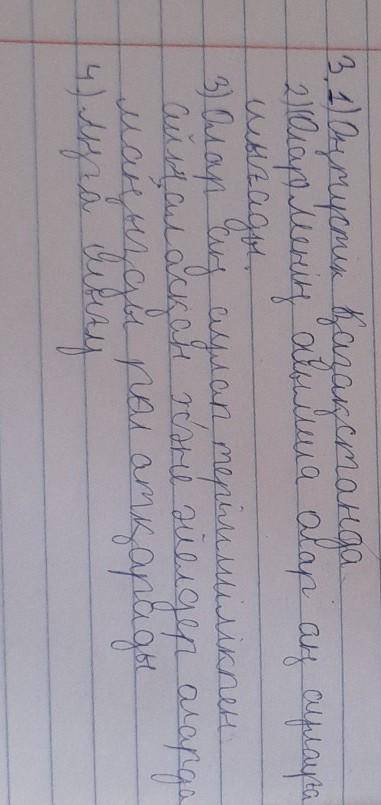 3. 1) Оңтүстік Қазақстанда.
2) Олар менің ойымша олар аң аулауға
шығады.
3) Олар аң аулап терімшілікпен
айналасқан және әйелдер оларда
маңызды рөл атқарады
4) Аңға шығу